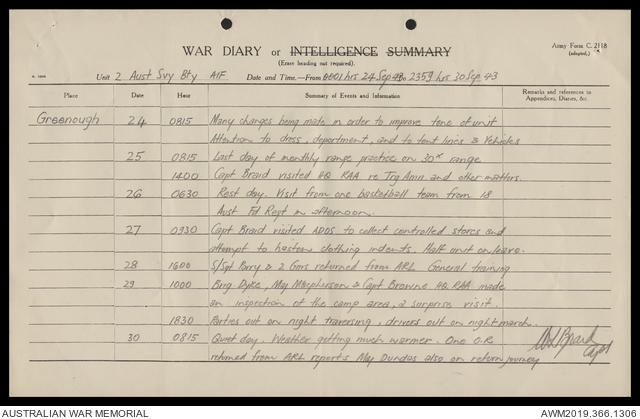 Army Form C. 2118
(adapted.)
WAR DIARY or INTELLIGENCE SUMMARY
(Erase heading not required).
Unit 2 Aust Svy Bty AIF. Date and Time.—From 0001 hrs 24 Sep 43 to 2359 hrs 30 Sep 43
Place Date Hour Summary of Events and Information Remarks and references to Appendices, Diaries, &c.
Greenough 24 0815 Many charges being made in order to improve tone of unit
Attention to dress, deportment, and to tent lines & Vehicles
25 0815 Last day of monthly range practice on 30x range
1400 Capt Braid visited HQ RAA re Trg Amn and other matters.
26 0630 Rest day. Visit from one basketball team from 18
Aust Fd Regt in afternoon.
27 0930 Capt Braid visited ADOS to collect controlled stores and
attempt to hasten clothing indents. Half unit on leave.
28 1600 S/Sgt Parry & 2 Gnrs returned from ARL General training
29 1000 Brig Dyke, Maj Macpherson & Capt Browne HQ RAA made
an inspection of the camp area, a surprise visit.
1830 Parties out on night traversing, drivers out on night march.
30 0815 Quiet day. Weather getting much warmer. One O.R
returned from ARL reports Maj Dundas also on return journey
Braid
Capt
AUSTRALIAN WAR MEMORIAL
AWM2019.366.1306